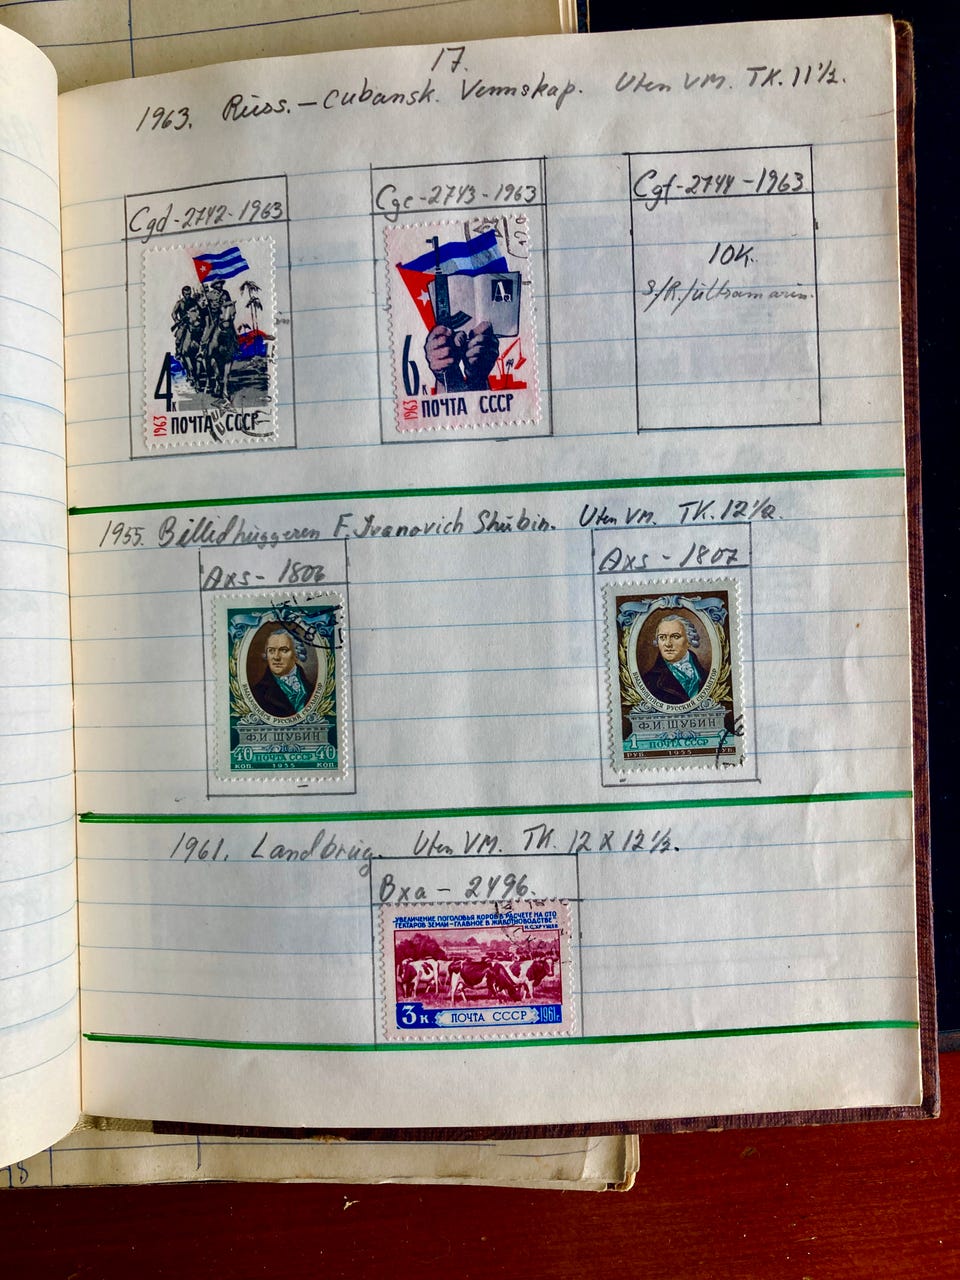 17.
1963. Russ. – Cubansk. Vennskap. Uten VM. TK. 11½.
Cgd-2742-1963
Cge-2743-1963
Cgf-2744-1963
10K.
S/R./ültramarin.
4к
1963 ПОЧТА СССР
А
6к
1963 ПОЧТА СССР
1955. Billedhuggeren F. Ivanovich Shubin. Uten VM. TK. 12½.
Axs - 1806
Axs - 1807
ВЫДАЮЩИЙСЯ РУССКИЙ СКУЛЬПТОР
Ф.И. ШУБИН
40 ПОЧТА СССР 40
КОП. 1955 КОП.
ВЫДАЮЩИЙСЯ РУССКИЙ СКУЛЬПТОР
Ф.И. ШУБИН
1 ПОЧТА СССР
РУБ. 1955 РУБ.
1961. Landbrug. Uten VM. TK. 12 X 12½.
Bxa - 2496.
„УВЕЛИЧЕНИЕ ПОГОЛОВЬЯ КОРОВ В РАСЧЕТЕ НА СТО
ГЕКТАРОВ ЗЕМЛИ–ГЛАВНОЕ В ЖИВОТНОВОДСТВЕ"
Н.С.ХРУЩЕВ
3 к. ПОЧТА СССР 1961г.